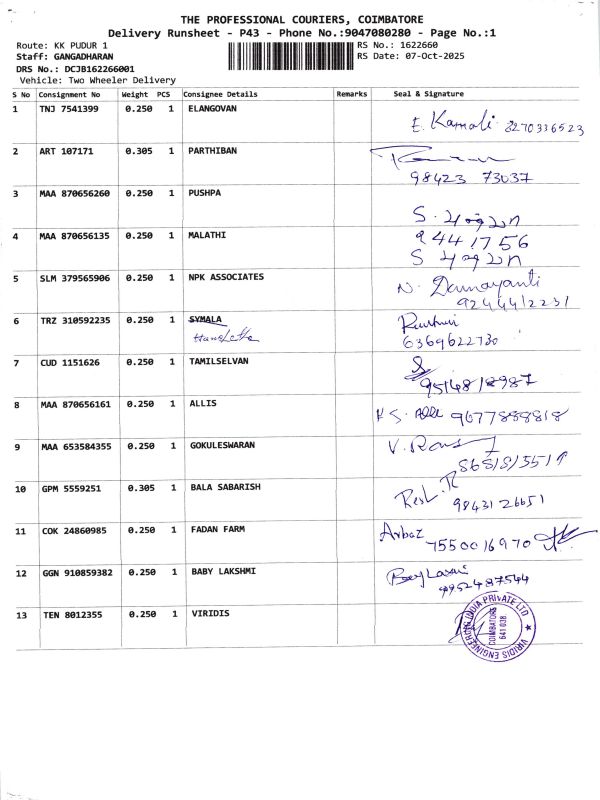 THE PROFESSIONAL COURIERS, COIMBATORE
Delivery Runsheet - P43 - Phone No.:9047080280 - Page No.:1
Route: KK PUDUR 1
RS No.: 1622660
Staff: GANGADHARAN
RS Date: 07-Oct-2025
DRS No.: DCJB162266001
Vehicle: Two Wheeler Delivery
S No Consignment No Weight PCS Consignee Details Remarks Seal & Signature
1 TNJ 7541399 0.250 1 ELANGOVAN
E. Kamali 8270336523
2 ART 107171 0.305 1 PARTHIBAN
98423 73037
3 MAA 870656260 0.250 1 PUSHPA
S. புஷ்பா
4 MAA 870656135 0.250 1 MALATHI
9441756
S புஷ்பா
5 SLM 379565906 0.250 1 NPK ASSOCIATES
N. Damayanti
9244412231
6 TRZ 310592235 0.250 1 SYMALA
6369622730
7 CUD 1151626 0.250 1 TAMILSELVAN
9514818987
8 MAA 870656161 0.250 1 ALLIS
9677888818
9 MAA 653584355 0.250 1 GOKULESWARAN
10 GPM 5559251 0.305 1 BALA SABARISH
9843126651
11 COK 24860985 0.250 1 FADAN FARM
Arbaz
7550016970
12 GGN 910859382 0.250 1 BABY LAKSHMI
9952487544
13 TEN 8012355 0.250 1 VIRIDIS
VIRIDIS ENGINEERING INDIA PRIVATE LTD
COIMBATORE
641 038